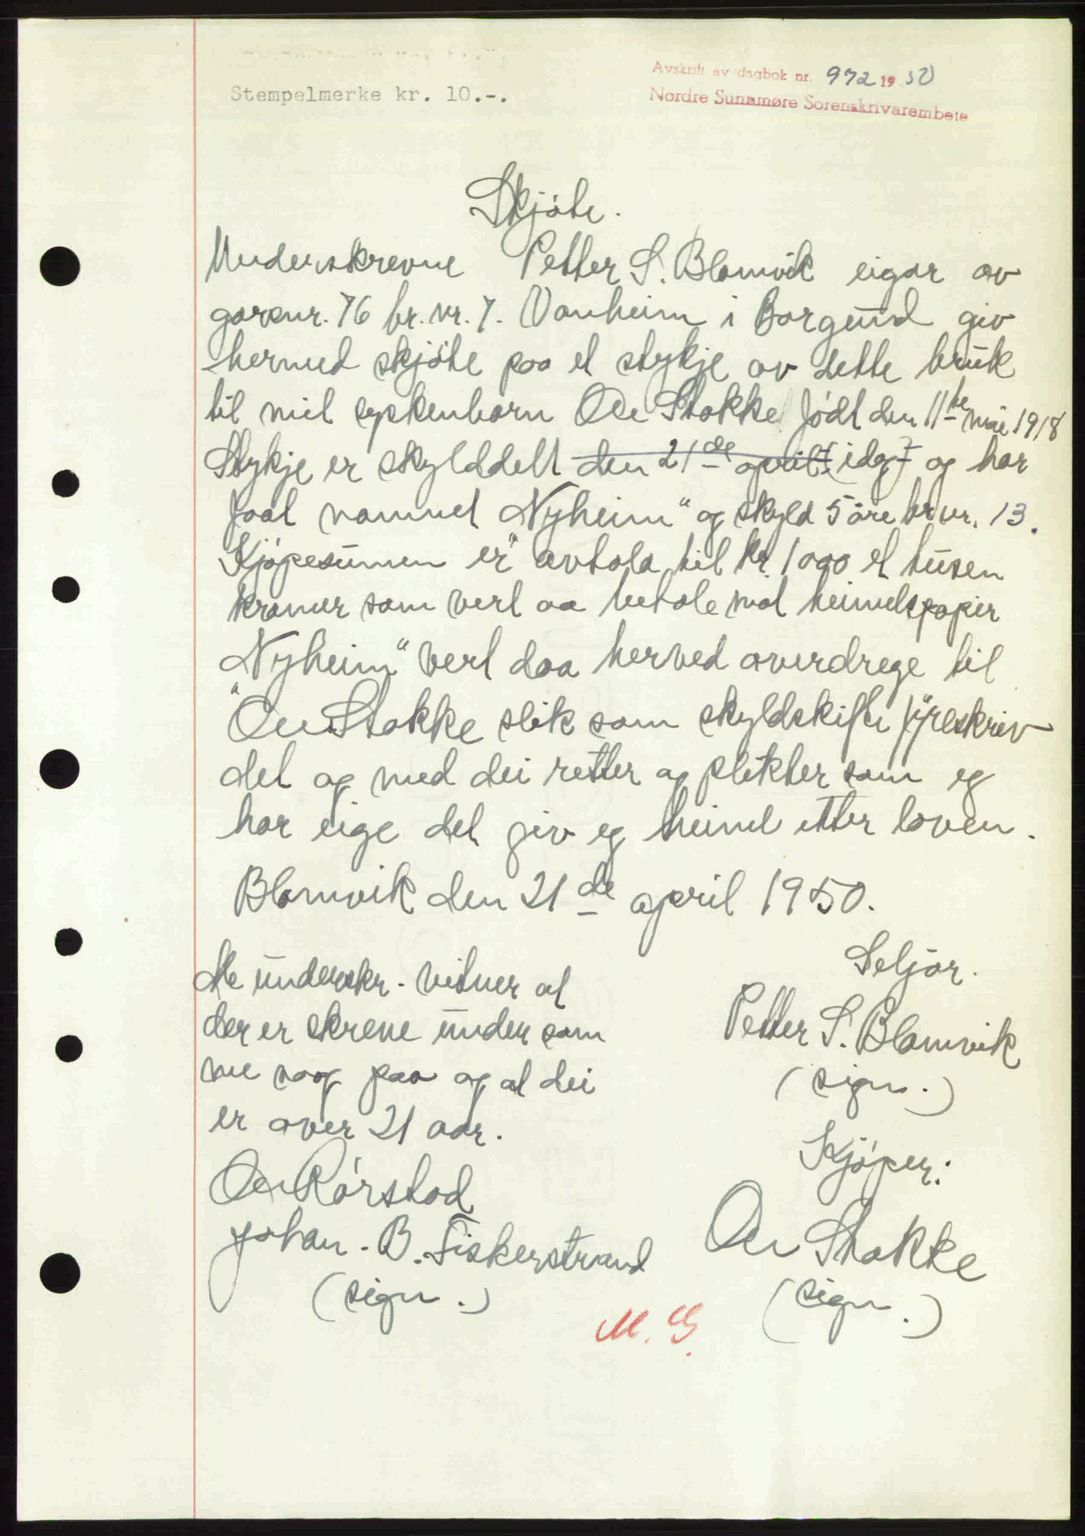 Avskrift av dagbok nr. 972 1950
Nordre Sunnmøre Sorenskrivarembete
Stempelmerke kr. 10.-.
Skjöte.
Underskrevne Petter S. Blomvik eigar av
garsnr. 76 br. nr. 7. Vonheim i Borgund giv
hermed skjöte paa et stykje av dette bruk
til mit syskenbarn Ole Stokke födt den 11te mai 1918
Stykje er skylddelt den 21de april (idag) og har
faat namnet „Nyheim“ og skyld 5 öre br nr. 13.
Kjöpesumen er avtala til kr. 1000 et tusen
kroner som vert aa betale mot heimelspapir
„Nyheim“ vert daa herved overdrege til
Ole Stokke slik som skyldskifte fyreskriv
det og med dei retter og plikter som eg
har eige det giv eg heimel etter loven.
Blomvik den 21de april 1950.
Me underskr. vitner at
der er skreve under som
me saag paa og at dei
er over 21 aar.
Ole Rörstad
Johan. B. Fiskerstrand
(sign.)
Seljar.
Petter S. Blomvik
(sign.)
Kjöper:
Ole Stokke
(sign.)
M. G.